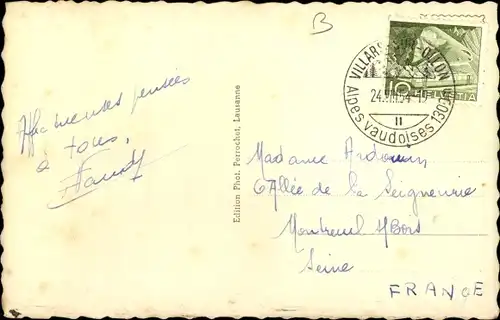 B
VILLARS
Alpes vaudoises 1300 m
24.VIII.54-19
II
10
HELVETIA
Affectueuses pensées
à tous,
Edition Phot. Perrochet, Lausanne
Madame Ardouin
6 Allée de la Seigneurie
Montreuil s/Bois
Seine
FRANCE